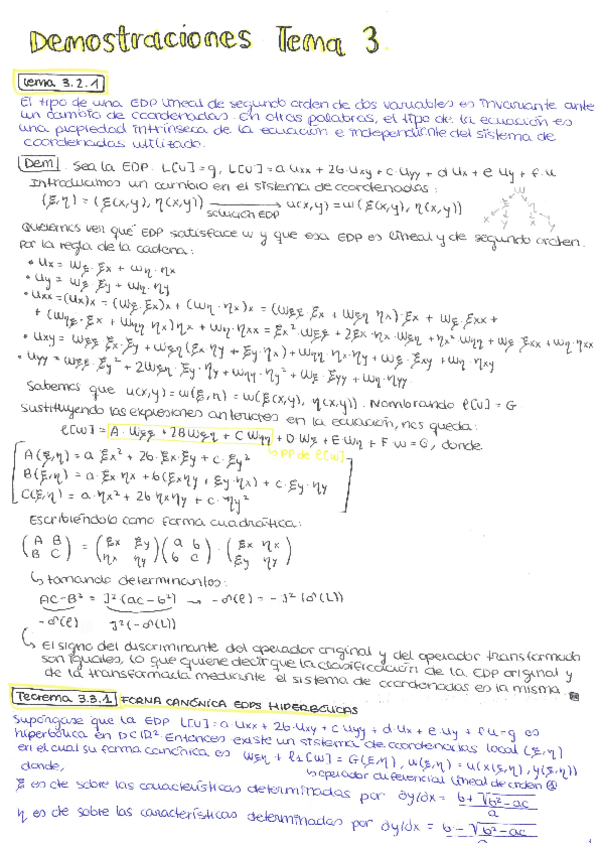 Demostraciones Tema 3.
Lema 3.2.1
El tipo de una EDP lineal de segundo orden de dos variables es invariante ante
un cambio de coordenadas. En otras palabras, el tipo de la ecuación es
una propiedad intrínseca de la ecuación e independiente del sistema de
coordenadas utilizado.
Dem. Sea la EDP. L[U]=g, L[U]=a·Uxx+2b·Uxy+c·Uyy+d·Ux+e·Uy+f·u
Introducimos un cambio en el sistema de coordenadas:
(ξ,η)=(ξ(x,y), η(x,y)) → solución EDP u(x,y)=w(ξ(x,y), η(x,y))
Queremos ver qué EDP satisface w y que esa EDP es lineal y de segundo orden.
Por la regla de la cadena:
• Ux = Wξ·ξx + Wη·ηx
• Uy = Wξ·ξy + Wη·ηy
• Uxx=(Ux)x=(Wξ·ξx)x+(Wη·ηx)x=(Wξξ·ξx+Wξη ηx)·ξx+Wξ·ξxx+
+(Wηξ·ξx+Wηη ηx)ηx+Wη·ηxx=ξx²·Wξξ+2ξx·ηx·Wξη+ηx² Wηη+Wξ ξxx+Wη·ηxx
• Uxy=Wξξ ξx·ξy+Wξη(ξx ηy+ξy·ηx)+Wηη·ηx·ηy+Wξ·ξxy+Wη·ηxy
• Uyy=Wξξ·ξy²+2Wξη·ξy·ηy+Wηη·ηy²+Wξ·ξyy+Wη·ηyy.
Sabemos que u(x,y)=w(ξ,η)=w(ξ(x,y), η(x,y)). Nombrando ℓ[w]=G
Sustituyendo las expresiones anteriores en la ecuación, nos queda:
ℓ[w]=A·Wξξ+2BWξη+CWηη+DWξ+EWη+F·w=G, donde
↳ PP de ℓ[w]
A(ξ,η)=a·ξx²+2b·ξx·ξy+c·ξy²
B(ξ,η)=a·ξx ηx+b(ξxηy+ξy·ηx)+c·ξy·ηy
C(ξ,η)=a·ηx²+2b ηxηy+c·ηy²
Escribiéndolo como forma cuadrática:
(A B) = (ξx ξy)(a b)·(ξx ηx)
(B C) (ηx ηy)(b c) (ξy ηy)
↳ tomando determinantes:
AC-B² = J²(ac-b²) → -δ(ℓ) = -J²(δ(L))
-δ(ℓ) J²(-δ(L))
↳ El signo del discriminante del operador original y del operador transformado
son iguales, lo que quiere decir que la clasificación de la EDP original y
de la transformada mediante el sistema de coordenadas es la misma.
Teorema 3.3.1 FORMA CANÓNICA EDPS HIPERBÓLICAS
Supóngase que la EDP L[U]=a·Uxx+2b·Uxy+cUyy+d·Ux+e·Uy+fu=g es
hiperbólica en D⊂ℝ². Entonces existe un sistema de coordenadas local (ξ,η)
en el cual su forma canónica es Wξη+ℓ1[w]=G(ξ,η), w(ξ,η)=u(x(ξ,η),y(ξ,η))
donde, ↳ operador diferencial lineal de orden ①
ξ es cte sobre las características determinadas por ∂y/∂x = b+√b²-ac / a
η es cte sobre las características determinadas por ∂y/∂x = b-√b²-ac